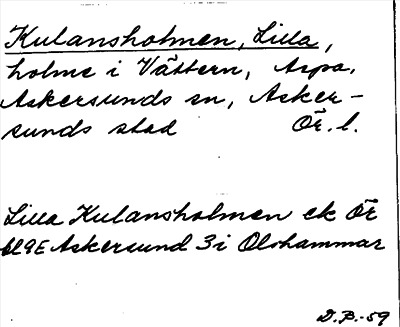 Kulansholmen, Lilla,
holme i Vättern, Aspa,
Askersunds sn, Asker-
sunds stad Ör. l.
Lilla Kulansholmen ek Ör
bl 9E Askersund 3 i Olshammar
D.P.-59